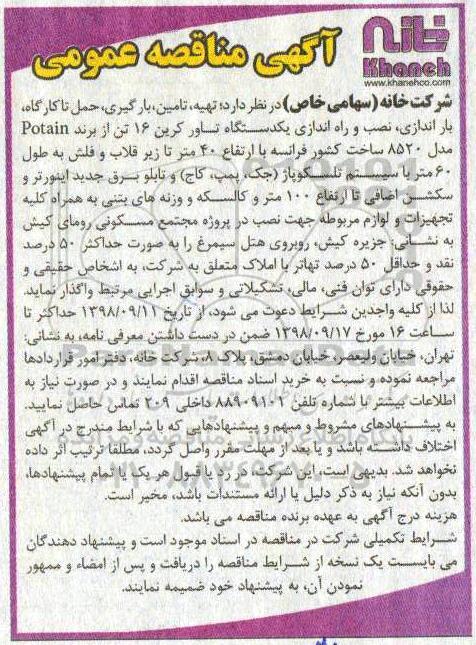 خانه
Khaneh
www.khanehco.com
آگهی مناقصه عمومی
شرکت خانه (سهامی خاص) در نظر دارد؛ تهیه، تامین، بارگیری، حمل تا کارگاه،
بار اندازی، نصب و راه اندازی یکدستگاه تاور کرین ۱۶ تن از برند Potain
مدل ۸۵۲۰ ساخت کشور فرانسه با ارتفاع ۴۰ متر تا زیر قلاب و فلش به طول
۶۰ متر با سیستم تلسکوپاژ (جک، پمپ، کاج) و تابلو برق جدید اینورتر و
سکشن اضافی تا ارتفاع ۱۰۰ متر و کالسکه و وزنه های بتنی به همراه کلیه
تجهیزات و لوازم مربوطه جهت نصب در پروژه مجتمع مسکونی رومای کیش
به نشانی: جزیره کیش، روبروی هتل سیمرغ را به صورت حداکثر ۵۰ درصد
نقد و حداقل ۵۰ درصد تهاتر با املاک متعلق به شرکت، به اشخاص حقیقی و
حقوقی دارای توان فنی، مالی، تشکیلاتی و سوابق اجرایی مرتبط واگذار نماید.
لذا از کلیه واجدین شرایط دعوت می شود، از تاریخ ۱۳۹۸/۰۹/۱۱ حداکثر تا
ساعت ۱۶ مورخ ۱۳۹۸/۰۹/۱۷ ضمن در دست داشتن معرفی نامه، به نشانی:
تهران، خیابان ولیعصر، خیابان دمشق، پلاک ۸، شرکت خانه، دفتر امور قراردادها
مراجعه نموده و نسبت به خرید اسناد مناقصه اقدام نمایند و در صورت نیاز به
اطلاعات بیشتر با شماره تلفن ۸۸۹۰۹۱۰۲ داخلی ۲۰۹ تماس حاصل نمایید.
به پیشنهادهای مشروط و مبهم و پیشنهادهایی که با شرایط مندرج در آگهی
اختلاف داشته باشد و یا بعد از مهلت مقرر واصل گردد، مطلقا ترتیب اثر داده
نخواهد شد. بدیهی است، این شرکت در رد یا قبول هر یک یا تمام پیشنهادها،
بدون آنکه نیاز به ذکر دلیل یا ارائه مستندات باشد، مخیر است.
هزینه درج آگهی به عهده برنده مناقصه می باشد.
شرایط تکمیلی شرکت در مناقصه در اسناد موجود است و پیشنهاد دهندگان
می بایست یک نسخه از شرایط مناقصه را دریافت و پس از امضاء و ممهور
نمودن آن، به پیشنهاد خود ضمیمه نمایند.